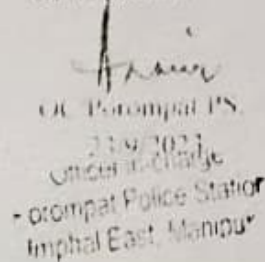 OC Porompat PS.
Officer-in-Charge
Porompat Police Station
Imphal East, Manipur